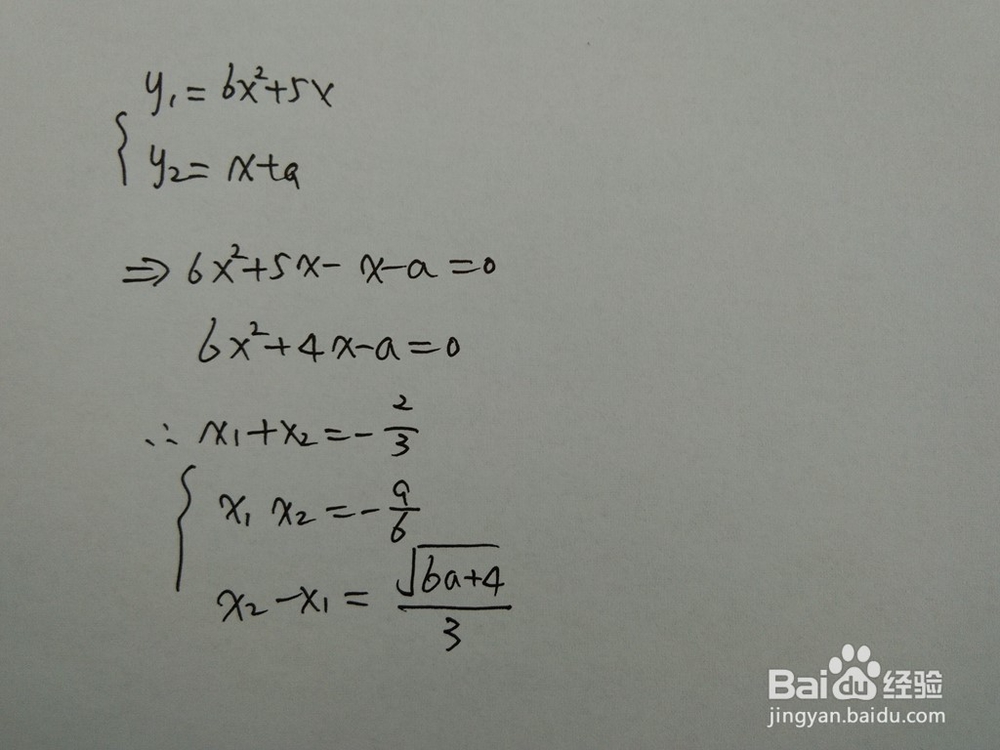 y₁=6x²+5x
y₂=x+a
⇒6x²+5x-x-a=0
6x²+4x-a=0
∴x₁+x₂=-2/3
x₁x₂=-a/6
x₂-x₁=√(6a+4)/3
Baidu经验
jingyan.baidu.com